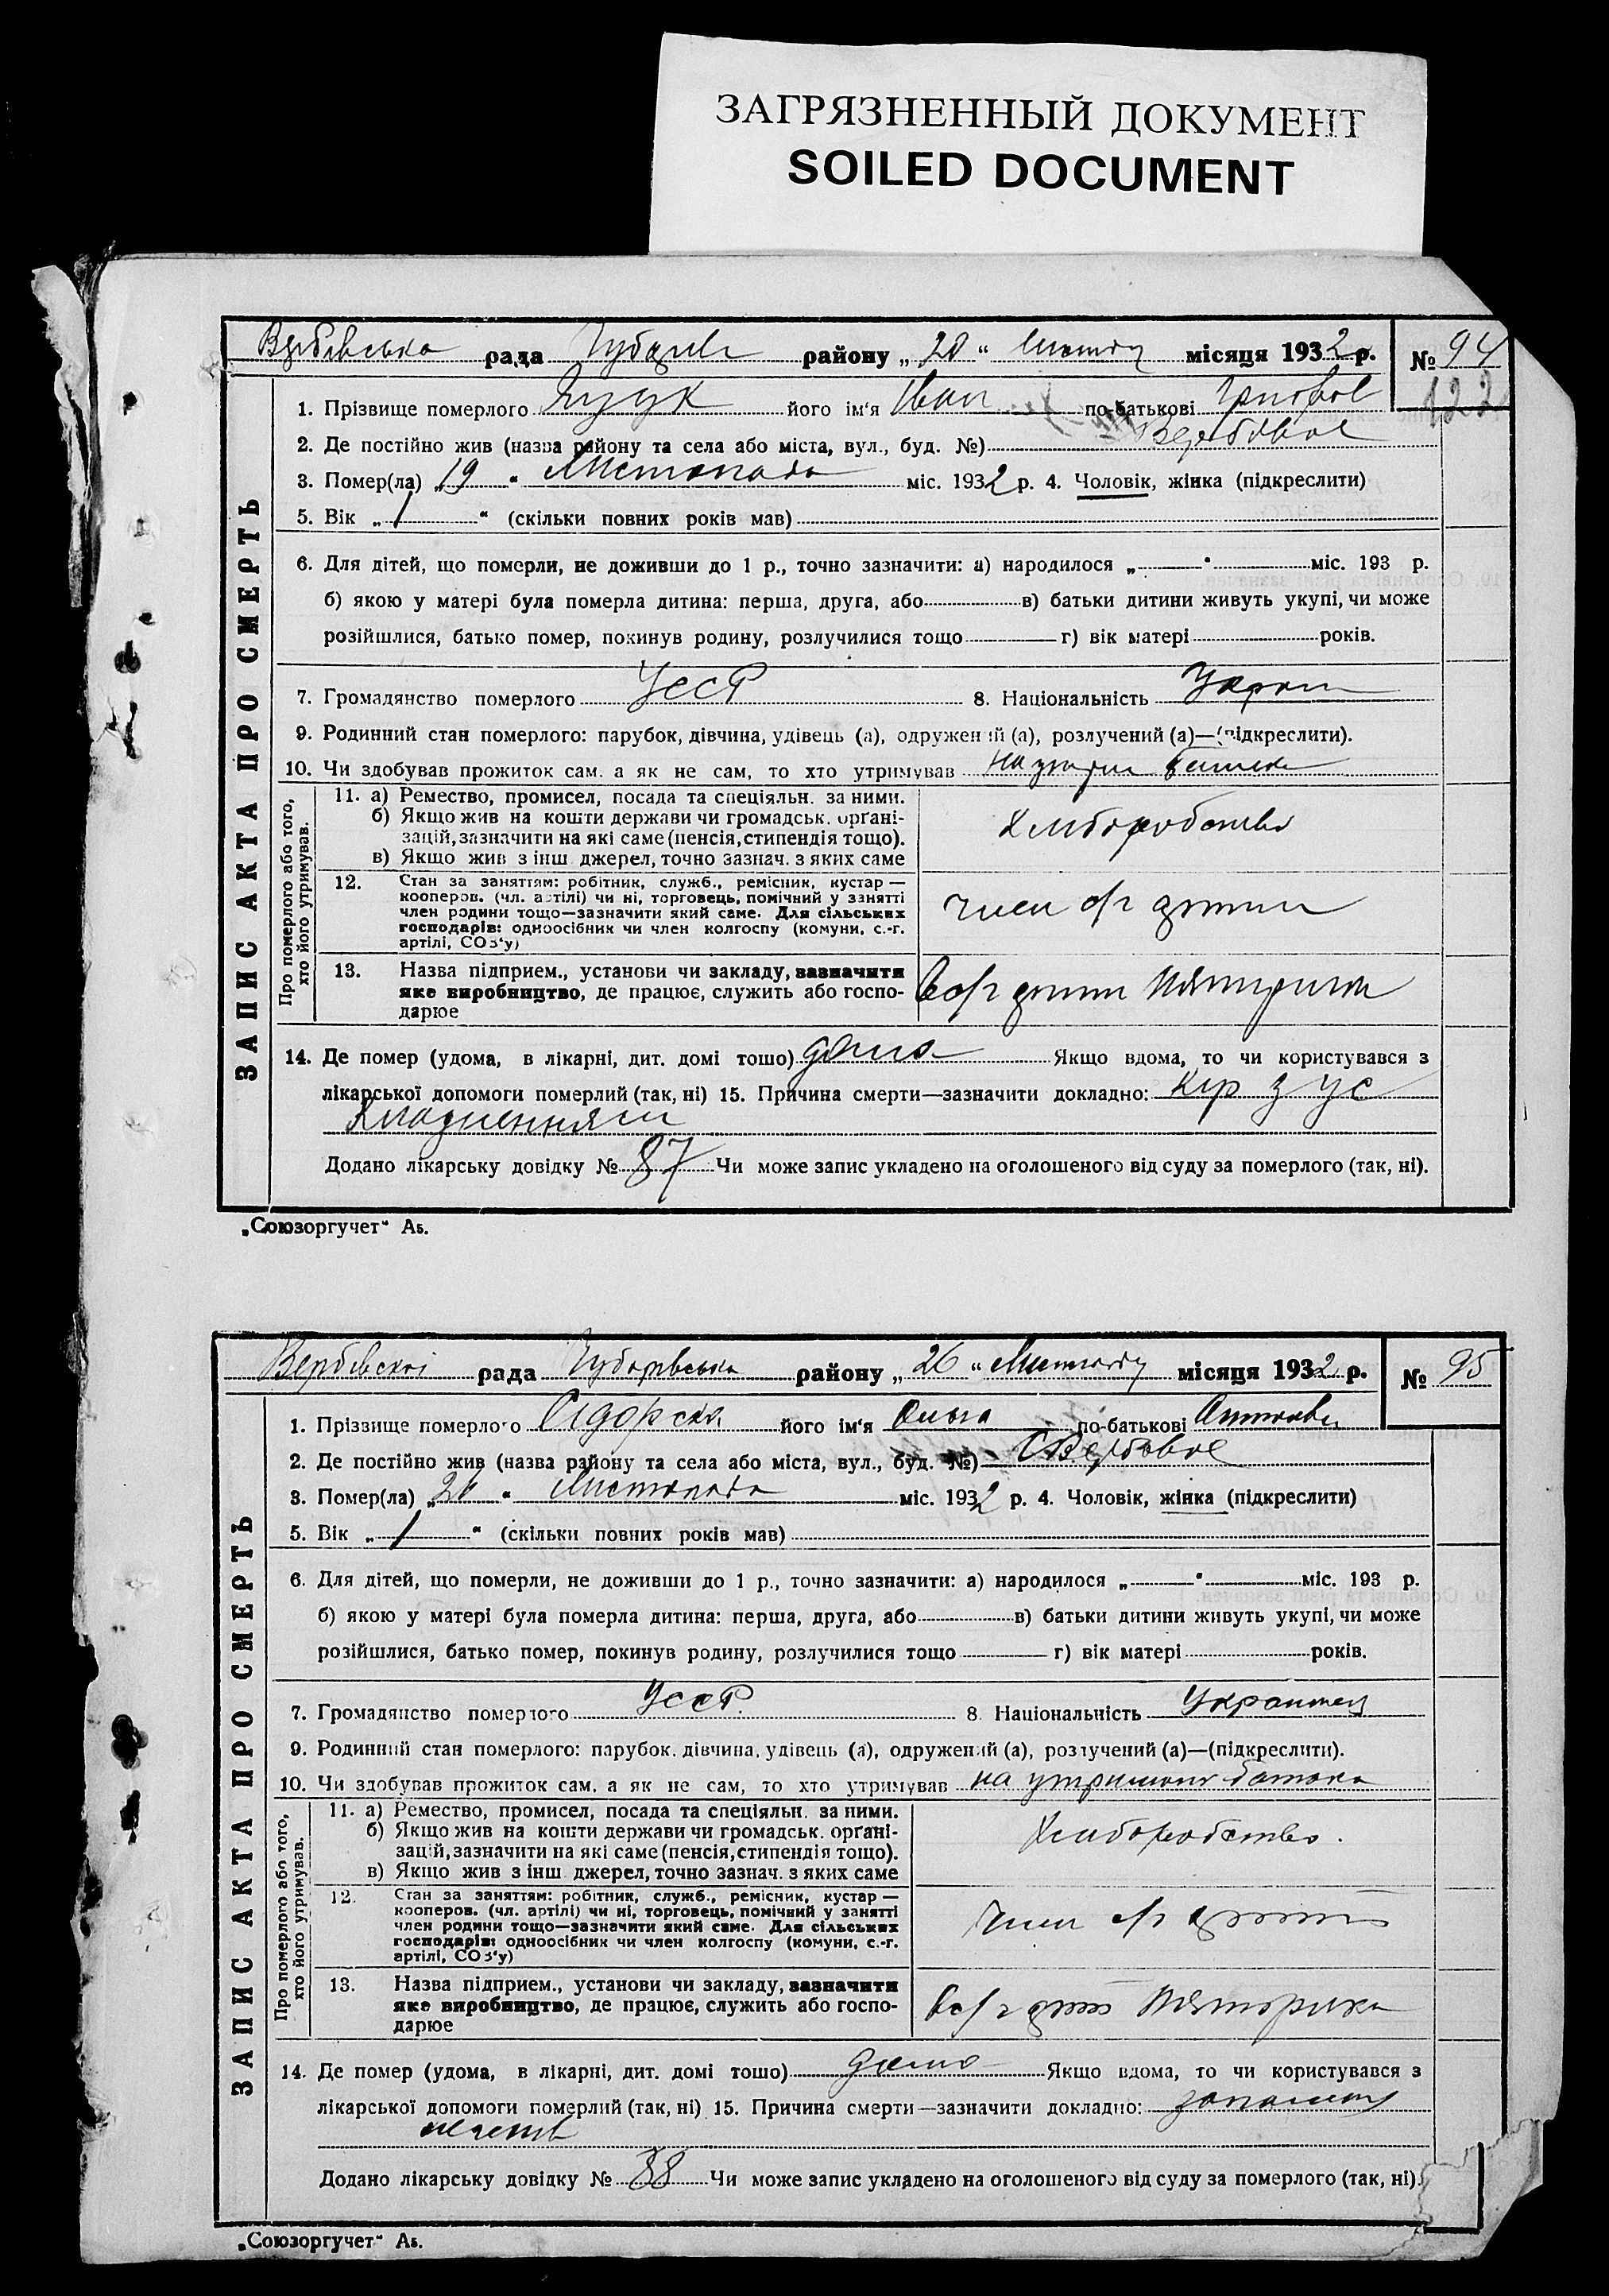 ЗАГРЯЗНЕННЫЙ ДОКУМЕНТ
SOILED DOCUMENT
Вербівська рада району „20“ місяця 1932 р. № 94
122
ЗАПИС АКТА ПРО СМЕРТЬ
1. Прізвище померлого його ім'я Іван по-батькові
2. Де постійно жив (назва району та села або міста, вул., буд. №) Вербовое
3. Помер(ла) „19“ Листопада міс. 1932 р. 4. Чоловік, жінка (підкреслити)
5. Вік „1“ (скільки повних років мав)
6. Для дітей, що померли, не доживши до 1 р., точно зазначити: а) народилося „ “ міс. 193 р.
б) якою у матері була померла дитина: перша, друга, або в) батьки дитини живуть укупі, чи може
розійшлися, батько помер, покинув родину, розлучилися тощо г) вік матері років.
7. Громадянство померлого УССР 8. Національність Украин
9. Родинний стан померлого: парубок, дівчина, удівець (а), одружений (а), розлучений (а)—(підкреслити).
10. Чи здобував прожиток сам, а як не сам, то хто утримував на батька
Про померлого або того,
хто його утримував.
11. а) Ремество, промисел, посада та спеціяльн. за ними.
б) Якщо жив на кошти держави чи громадськ. орґані-
зацій, зазначити на які саме (пенсія, стипендія тощо).
в) Якщо жив з інш джерел, точно зазнач. з яких саме
Хліборобство
12. Стан за заняттям: робітник, служб., ремісник, кустар —
кооперов. (чл. артілі) чи ні, торговець, помічний у занятті
член родини тощо—зазначити який саме. Для сільських
господарів: одноосібник чи член колгоспу (комуни, с.-г.
артілі, СОЗ'у)
член с/г артили
13. Назва підприєм., установи чи закладу, зазначити
яке виробництво, де працює, служить або госпо-
дарює
в с/г артили
14. Де помер (удома, в лікарні, дит. домі тощо) дома Якщо вдома, то чи користувався з
лікарської допомоги померлий (так, ні) 15. Причина смерти—зазначити докладно: кір з ус
кладненням
Додано лікарську довідку № 87 Чи може запис укладено на оголошеного від суду за померлого (так, ні).
„Союзоргучет“ Аб.
Вербівскої рада району „26“ місяця 1932 р. № 95
ЗАПИС АКТА ПРО СМЕРТЬ
1. Прізвище померлого його ім'я Ольга по-батькові
2. Де постійно жив (назва району та села або міста, вул., буд. №) С Вербовое
3. Помер(ла) Листопада міс. 1932 р. 4. Чоловік, жінка (підкреслити)
5. Вік „1“ (скільки повних років мав)
6. Для дітей, що померли, не доживши до 1 р., точно зазначити: а) народилося „ “ міс. 193 р.
б) якою у матері була померла дитина: перша, друга, або в) батьки дитини живуть укупі, чи може
розійшлися, батько помер, покинув родину, розлучилися тощо г) вік матері років.
7. Громадянство померлого УССР. 8. Національність
9. Родинний стан померлого: парубок, дівчина, удівець (а), одружений (а), розлучений (а)—(підкреслити).
10. Чи здобував прожиток сам, а як не сам, то хто утримував на утриманні батька
Про померлого або того,
хто його утримував.
11. а) Ремество, промисел, посада та спеціяльн. за ними.
б) Якщо жив на кошти держави чи громадськ. орґані-
зацій, зазначити на які саме (пенсія, стипендія тощо).
в) Якщо жив з інш джерел, точно зазнач. з яких саме
Хліборобство.
12. Стан за заняттям: робітник, служб., ремісник, кустар —
кооперов. (чл. артілі) чи ні, торговець, помічний у занятті
член родини тощо—зазначити який саме. Для сільських
господарів: одноосібник чи член колгоспу (комуни, с.-г.
артілі, СОЗ'у)
член с/г
13. Назва підприєм., установи чи закладу, зазначити
яке виробництво, де працює, служить або госпо-
дарює
в с/г
14. Де помер (удома, в лікарні, дит. домі тощо) дома Якщо вдома, то чи користувався з
лікарської допомоги померлий (так, ні) 15. Причина смерти—зазначити докладно:
легенів
Додано лікарську довідку № 88 Чи може запис укладено на оголошеного від суду за померлого (так, ні).
„Союзоргучет“ Аб.